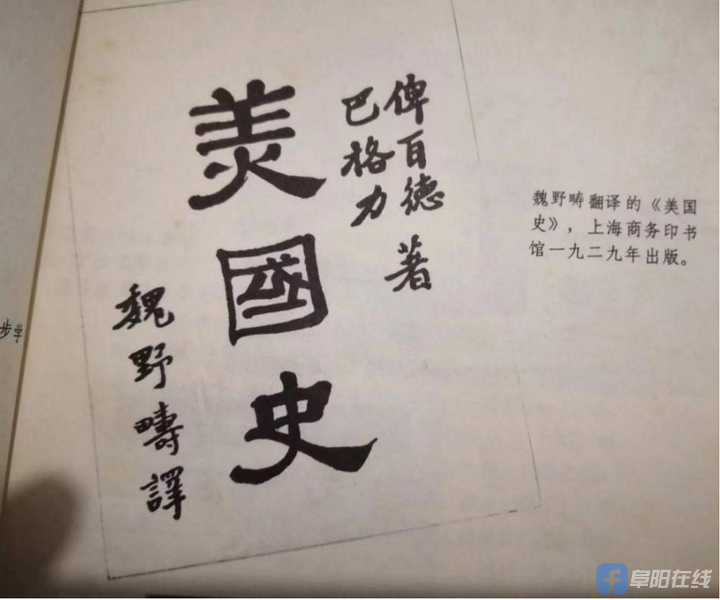 俾百德 著
巴格力
美國史
魏野疇譯
魏野畴翻译的《美国
史》，上海商务印书
馆一九二九年出版。
步学
阜阳在线